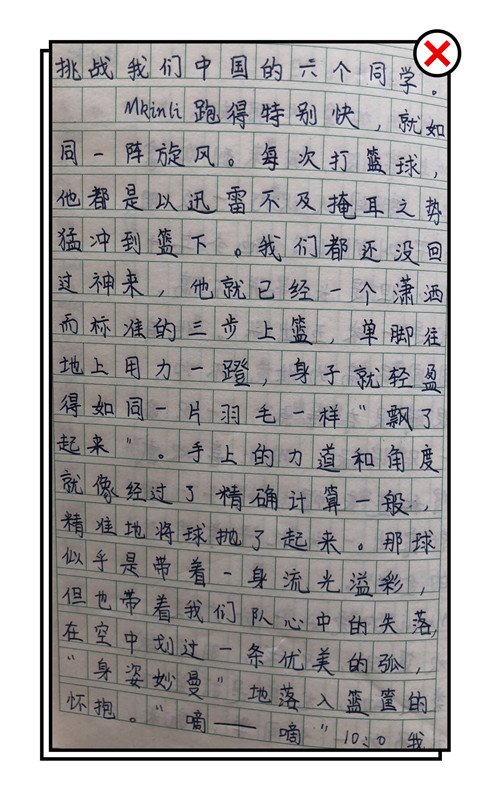 挑战我们中国的六个同学。
Mkinli跑得特别快，就如
同一阵旋风。每次打篮球，
他都是以迅雷不及掩耳之势
猛冲到篮下。我们都还没回
过神来，他就已经一个潇洒
而标准的三步上篮，单脚往
地上用力一蹬，身子就轻盈
得如同一片羽毛一样“飘了
起来”。手上的力道和角度
就像经过了精确计算一般，
精准地将球抛了起来。那球
似乎是带着一身流光溢彩，
但也带着我们队心中的失落，
在空中划过一条优美的弧，
“身姿妙曼”地落入篮筐的
怀抱。“嘀——嘀”10:0我